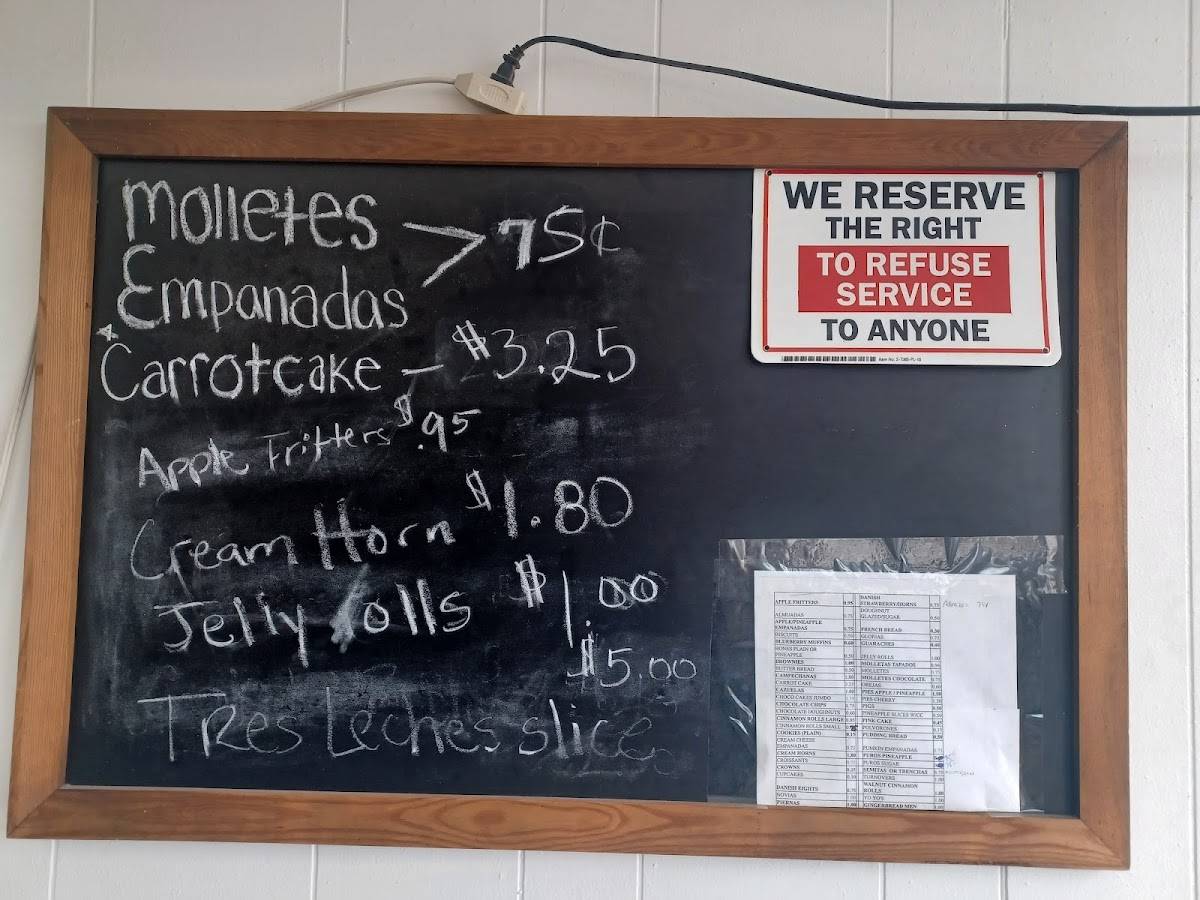 Molletes
> 75¢
Empanadas
Carrotcake – $3.25
Apple Fritters $.95
Cream Horn $1.80
Jelly rolls $1.00
$5.00
Tres Leches slice
WE RESERVE
THE RIGHT
TO REFUSE
SERVICE
TO ANYONE
APPLE FRITTERS 0.95
ALMUADAS
APPLE/PINEAPPLE
EMPANADAS 0.75
BISCUITS
BLUEBERRY MUFFINS
BONES PLAIN OR
PINEAPPLE
BROWNIES
BUTTER BREAD
CAMPECHANAS
CARROT CAKE
CAZUELAS
CHOCO CAKES JUMBO
CHOCOLATE CHIPS
CHOCOLATE DOUGHNUTS
CINNAMON ROLLS LARGE
CINNAMON ROLLS SMALL
COOKIES (PLAIN)
CREAM CHEESE
EMPANADAS
CREAM HORNS
CROISSANTS
CROWNS
CUPCAKES
DANISH EIGHTS
NOVIAS
PIERNAS
DANISH
STRAWBERRY/HORNS
DOUGHNUT
GLAZED/SUGAR
FRENCH BREAD
GLORIAS
GUARACHES
JELLY ROLLS 1.00
MOLLETAS TAPADOS
MOLLETES
MOLLETES CHOCOLATE
OREJAS
PIES APPLE / PINEAPPLE
PIES CHERRY
PIGS
PINEAPPLE SLICES
PINK CAKE
POLVORONES
PUDDING BREAD
PUMKIN EMPANADAS
PUROS PINEAPPLE
PUROS SUGAR
SEMITAS OR TRENCHAS
TURNOVERS
WALNUT CINNAMON
ROLLS
YO YO'S
GINGERBREAD MEN